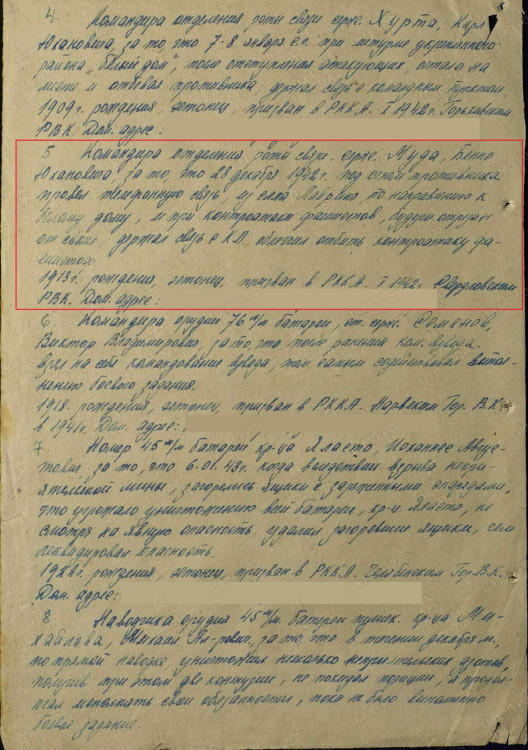 4. Командира отделения роты связи серж. Хурта, Карл
Юхановича, за то, что 7-8 января с.г. при штурме укрепленного
района „Белый дом", после отступления атакующих, остался на
месте и отбивая противника, держал связь с командным пунктом.
1909 г. рождения, эстонец, призван в РККА. I 1942 г. Горьковским
РВК. Дом. адрес:
5 Командира отделения роты связи. серж. Муда, Бенно
Юхановича, за то, что 23 декабря 1942 г. под огнем противника
провел телефонную связь, из села по направлению к
Белому дому, и при контратаке фашистов, будучи отрезан
от своих держал связь с К.П. отбить контратаку фа-
шистов.
1913 г. рождения, эстонец, призван в РККА. I 1942 г. Свердловским
РВК. Дом. адрес:
6. Командира орудия 76 м/м батареи, ст. серж. Семенов,
Виктор Владимирович, за то, что после ранения ком. взвода.
взял на себя командование взвода, тем самым содействовал выпол-
нению боевого задания.
1918. рождения, эстонец, призван в РККА. Нарвским Гор. В.К.
в 1941 г. Дом. адрес:
7 Номер 45 м/м батареи кр-ца Яласто, Иоханнес
за то, что 6.01.43 г. когда вследствии взрыва непри-
ятельской мины, загорелись ящики с заряженными снарядами,
что угрожало уничтожению всей батареи, кр-ц Яласто, не
смотря на явную опасность, удалил загоревшие ящики, чем
ликвидировал опасность.
рождения, эстонец, призван в РККА. Челябинским Гор. В.К.
Дом. адрес:
8 Наводчика орудия 45 м/м. батареи пушек. кр-ца Ми-
хайлова, Михаил за то что в течении декабря м.,
по прямой наводке уничтожил несколько неприятельских
получив при этом две контузии, не покидал позиции, а продол-
жал исполнять свои обязанности, пока не было выполнено
боевое задание.